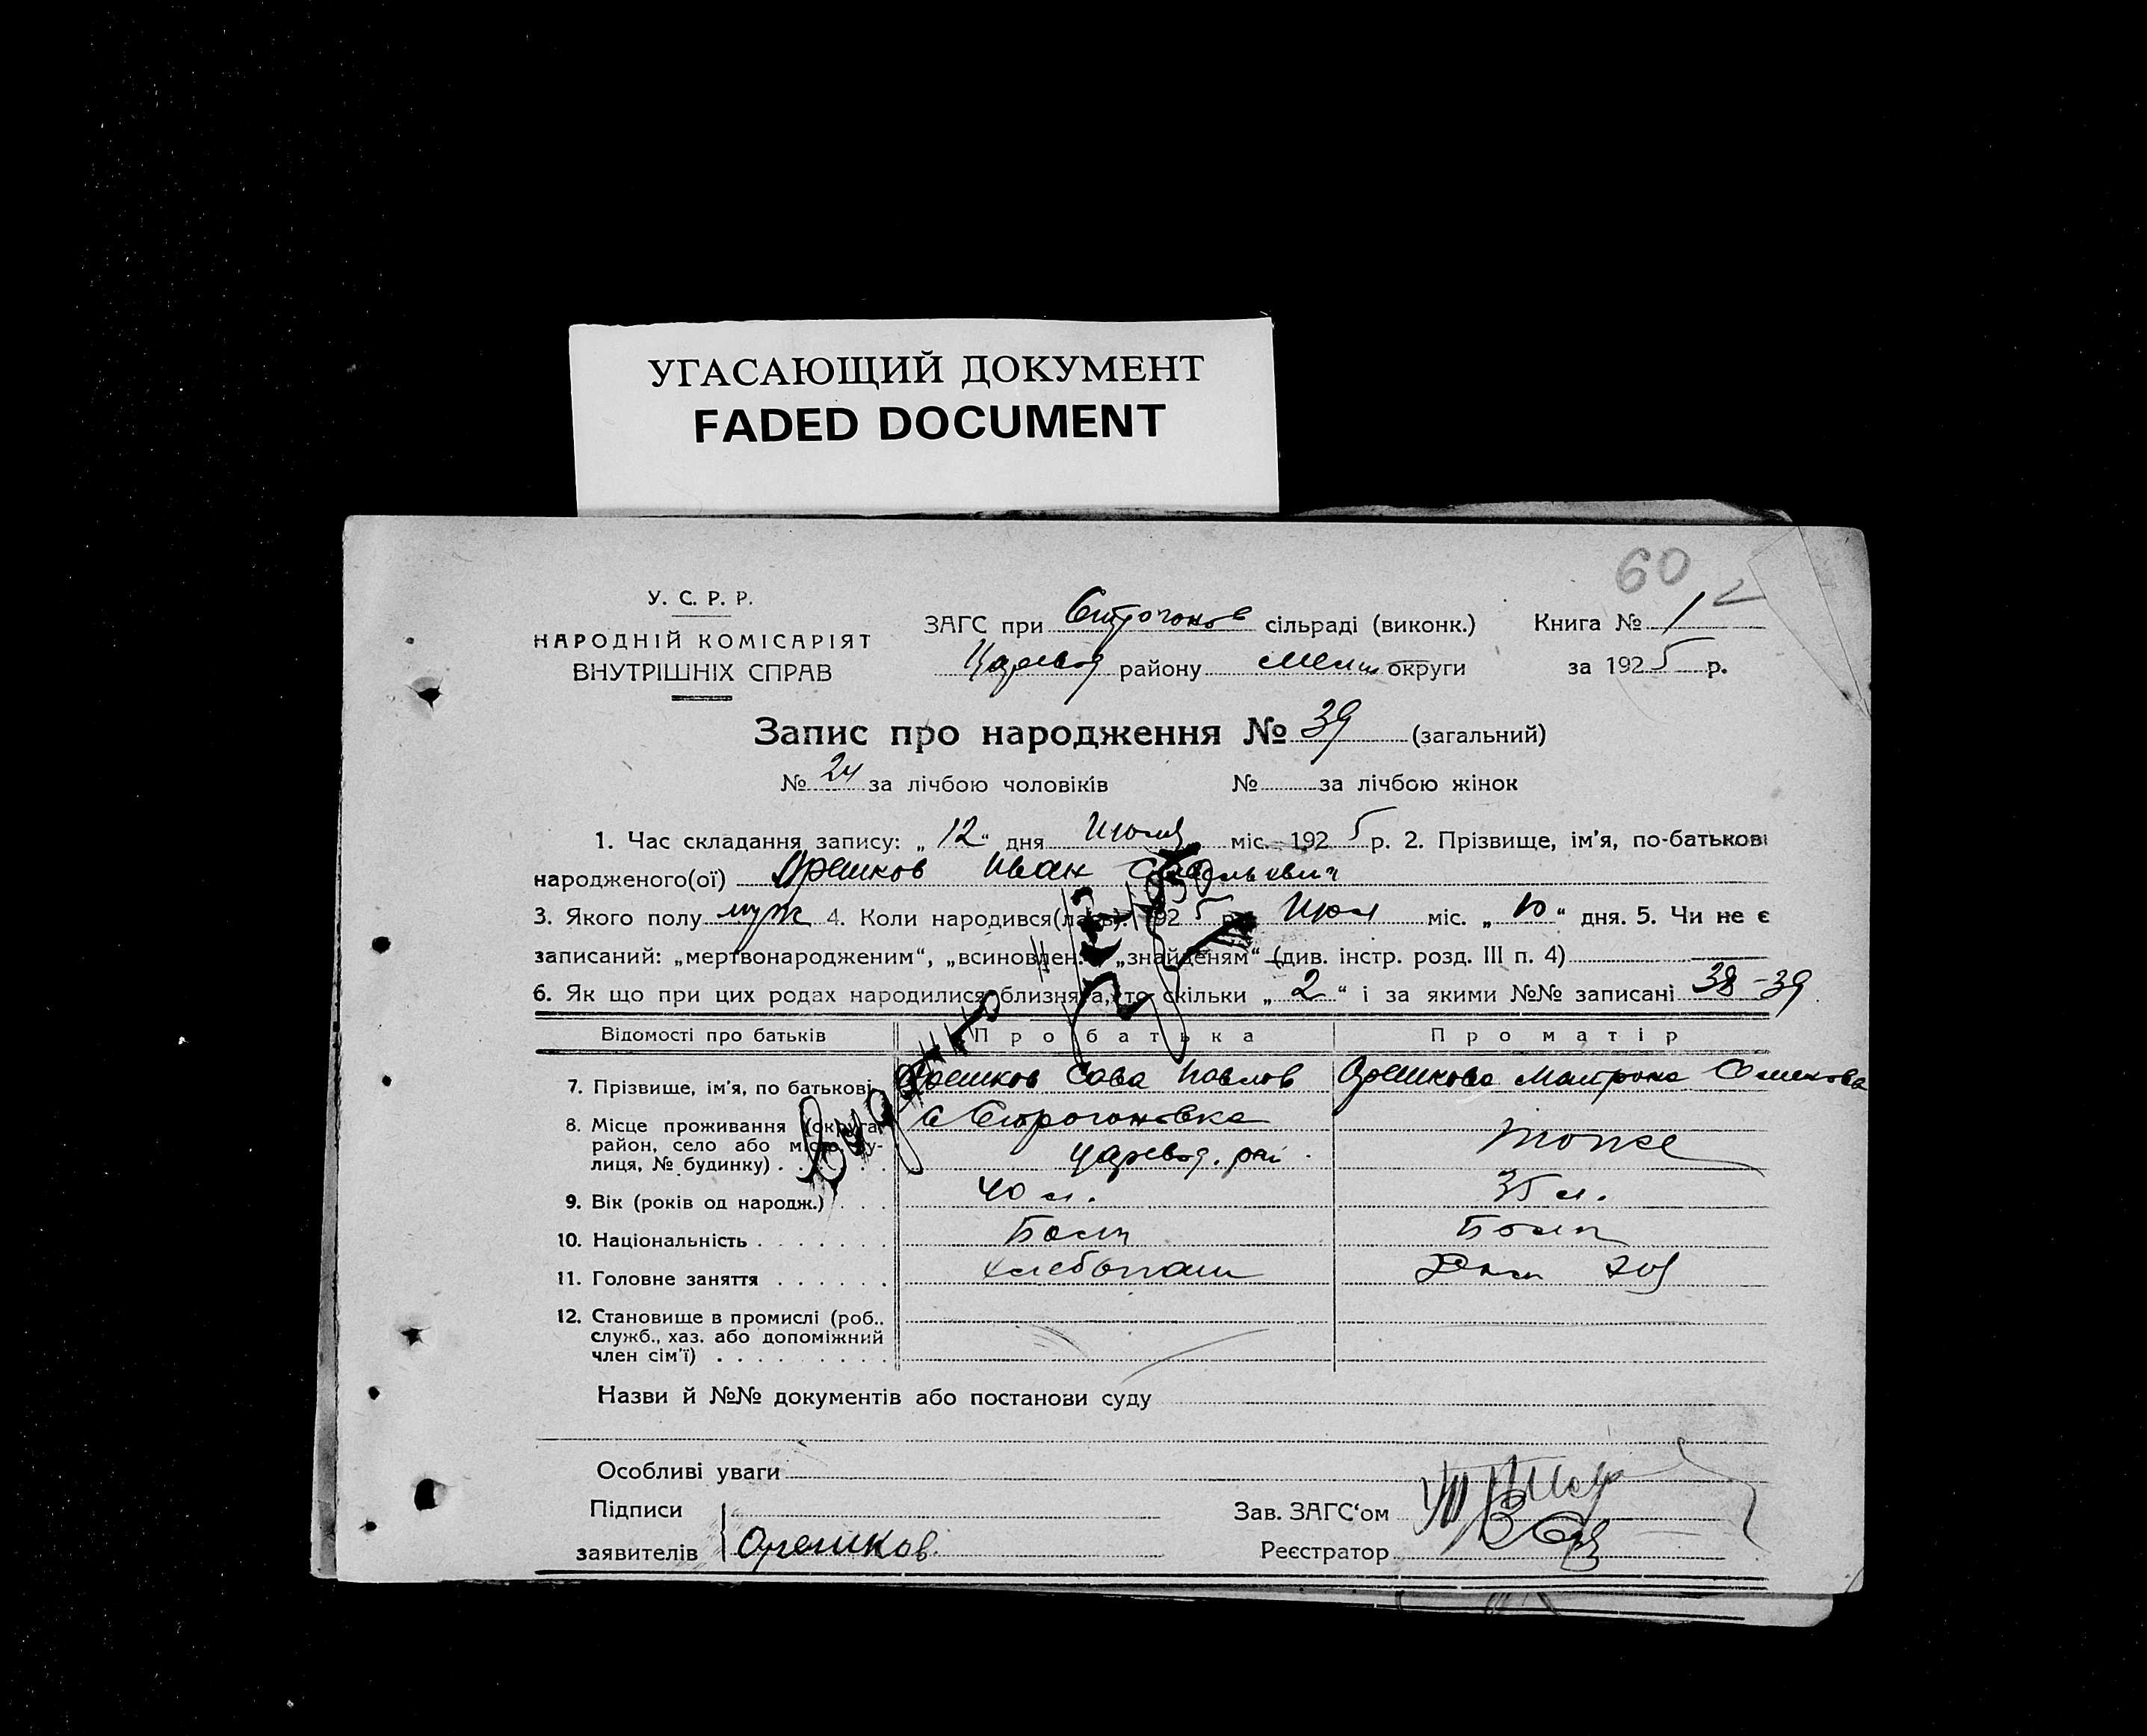 УГАСАЮЩИЙ ДОКУМЕНТ
FADED DOCUMENT
60
У. С. Р. Р.
НАРОДНІЙ КОМІСАРІЯТ
ВНУТРІШНІХ СПРАВ
ЗАГС при Строгонов сільраді (виконк.) Книга № 1
Царевод району Мелит округи за 1925 р.
Запис про народження № 39 (загальний)
№ 24 за лічбою чоловіків № за лічбою жінок
1. Час складання запису: „ 12 “ дня Июля міс. 1925 р. 2. Прізвище, ім'я, по-батькові
народженого(ої) Орешков Иван Савельевич
3. Якого полу муж 4. Коли народився(лась). 1925 р. Июл міс. „ 10 “ дня. 5. Чи не є
записаний: „мертвонародженим“, „всиновлен. “ „знайденям“ (див. інстр. розд. III п. 4)
6. Як що при цих родах народилися близнята, то скільки „ 2 “ і за якими №№ записані 38-39
Відомості про батьків Про батька Про матір
7. Прізвище, ім'я, по батькові Орешков Сава Павлов Орешкова Матрона Семенова
8. Місце проживання (округа, район, село або місто, вулиця, № будинку) с Строгоновка
Царевод. рай. тоже
9. Вік (років од народж.) 40 л. 35 л.
10. Національність Болг Болг
11. Головне заняття хлебопаш Дом хоз
12. Становище в промислі (роб.,
служб., хаз. або допоміжний
член сім'ї)
Назви й №№ документів або постанови суду
Особливі уваги
Підписи Зав. ЗАГС‘ом
заявителів Орешков. Реєстратор